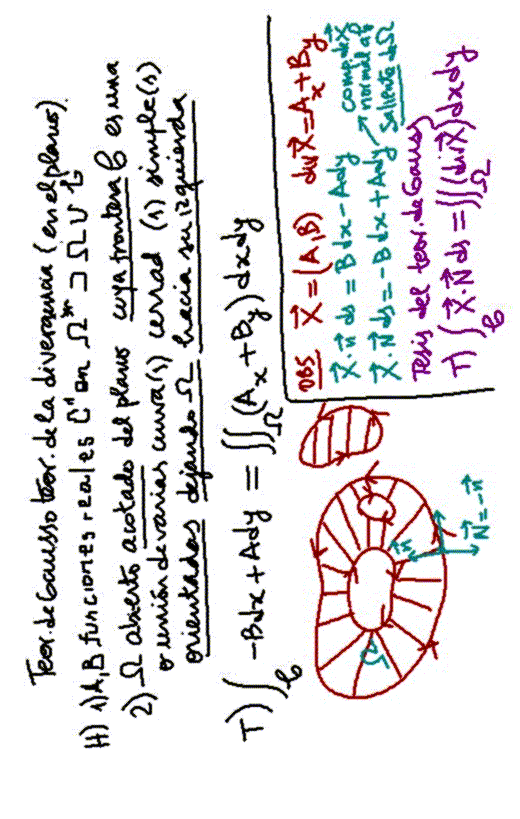 Teor. de Gauss o teor. de la divergencia (en el plano).
H) 1) A, B funciones reales C¹ en Ω* ⊃ Ω ∪ ℓ
2) Ω abierto acotado del plano cuya frontera ℓ es una
o unión de varias curva(s) cerrad (s) simple(s)
orientadas dejando Ω hacia su izquierda
T) ∫ℓ -Bdx + Ady = ∬Ω (Ax + By) dxdy
Ω
n⃗
N⃗ = -n⃗
OBS X⃗ = (A, B) div X⃗ = Ax + By
X⃗ · n⃗ ds = B dx - A dy
X⃗ · N⃗ ds = -B dx + A dy
comp. de X⃗
normal a ℓ
saliente de Ω
Tesis del teor. de Gauss
T) ∫ℓ X⃗ · N⃗ ds = ∬Ω (div X⃗) dxdy